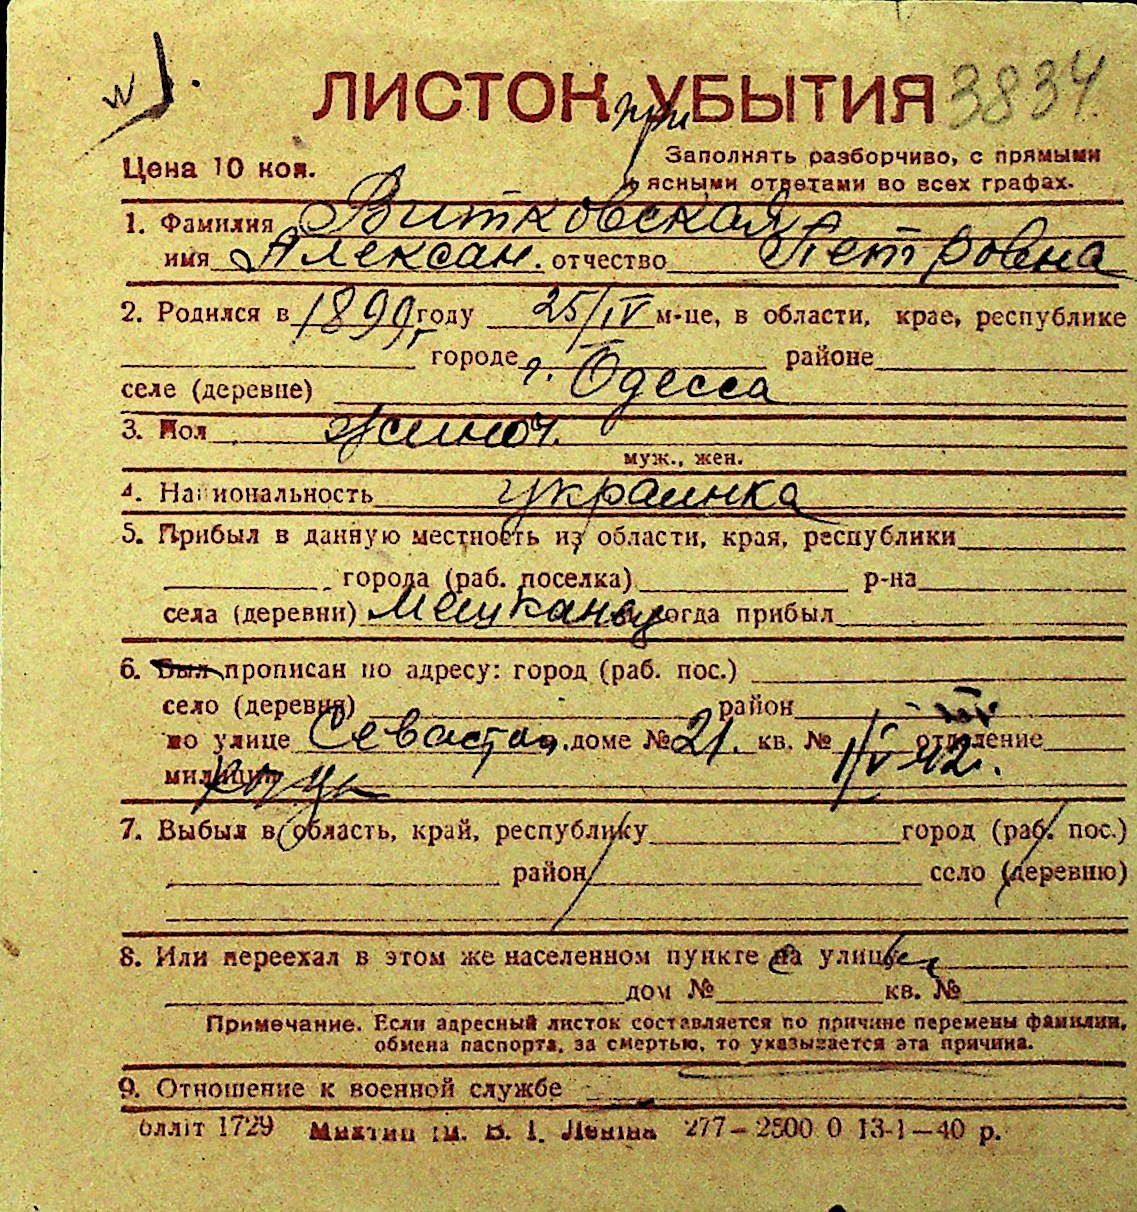 ЛИСТОК УБЫТИЯ 3834
при
Цена 10 коп.
Заполнять разборчиво, с прямыми
и ясными ответами во всех графах.
1. Фамилия Витковская
имя Алексан. отчество Петровна
2. Родился в 1899 г. году 25/IV м-це, в области, крае, республике
городе районе
селе (деревне) г. Одесса
3. Пол жиноч.
муж., жен.
4. Национальность украинка
5. Прибыл в данную местность из области, края, республики
города (раб. поселка) р-на
села (деревни) мешканец и когда прибыл
6. Был прописан по адресу: город (раб. пос.)
село (деревня) район
по улице Севастоп. доме № 21. кв. № отделение
милиции 1/IV 42.
7. Выбыл в область, край, республику город (раб. пос.)
район село (деревню)
8. Или переехал в этом же населенном пункте на улицу
дом № кв. №
Примечание. Если адресный листок составляется по причине перемены фамилии,
обмена паспорта, за смертью, то указывается эта причина.
9. Отношение к военной службе
Олліт 1729 ім. В. І. Леніна 277–2500 0 13-1–40 р.